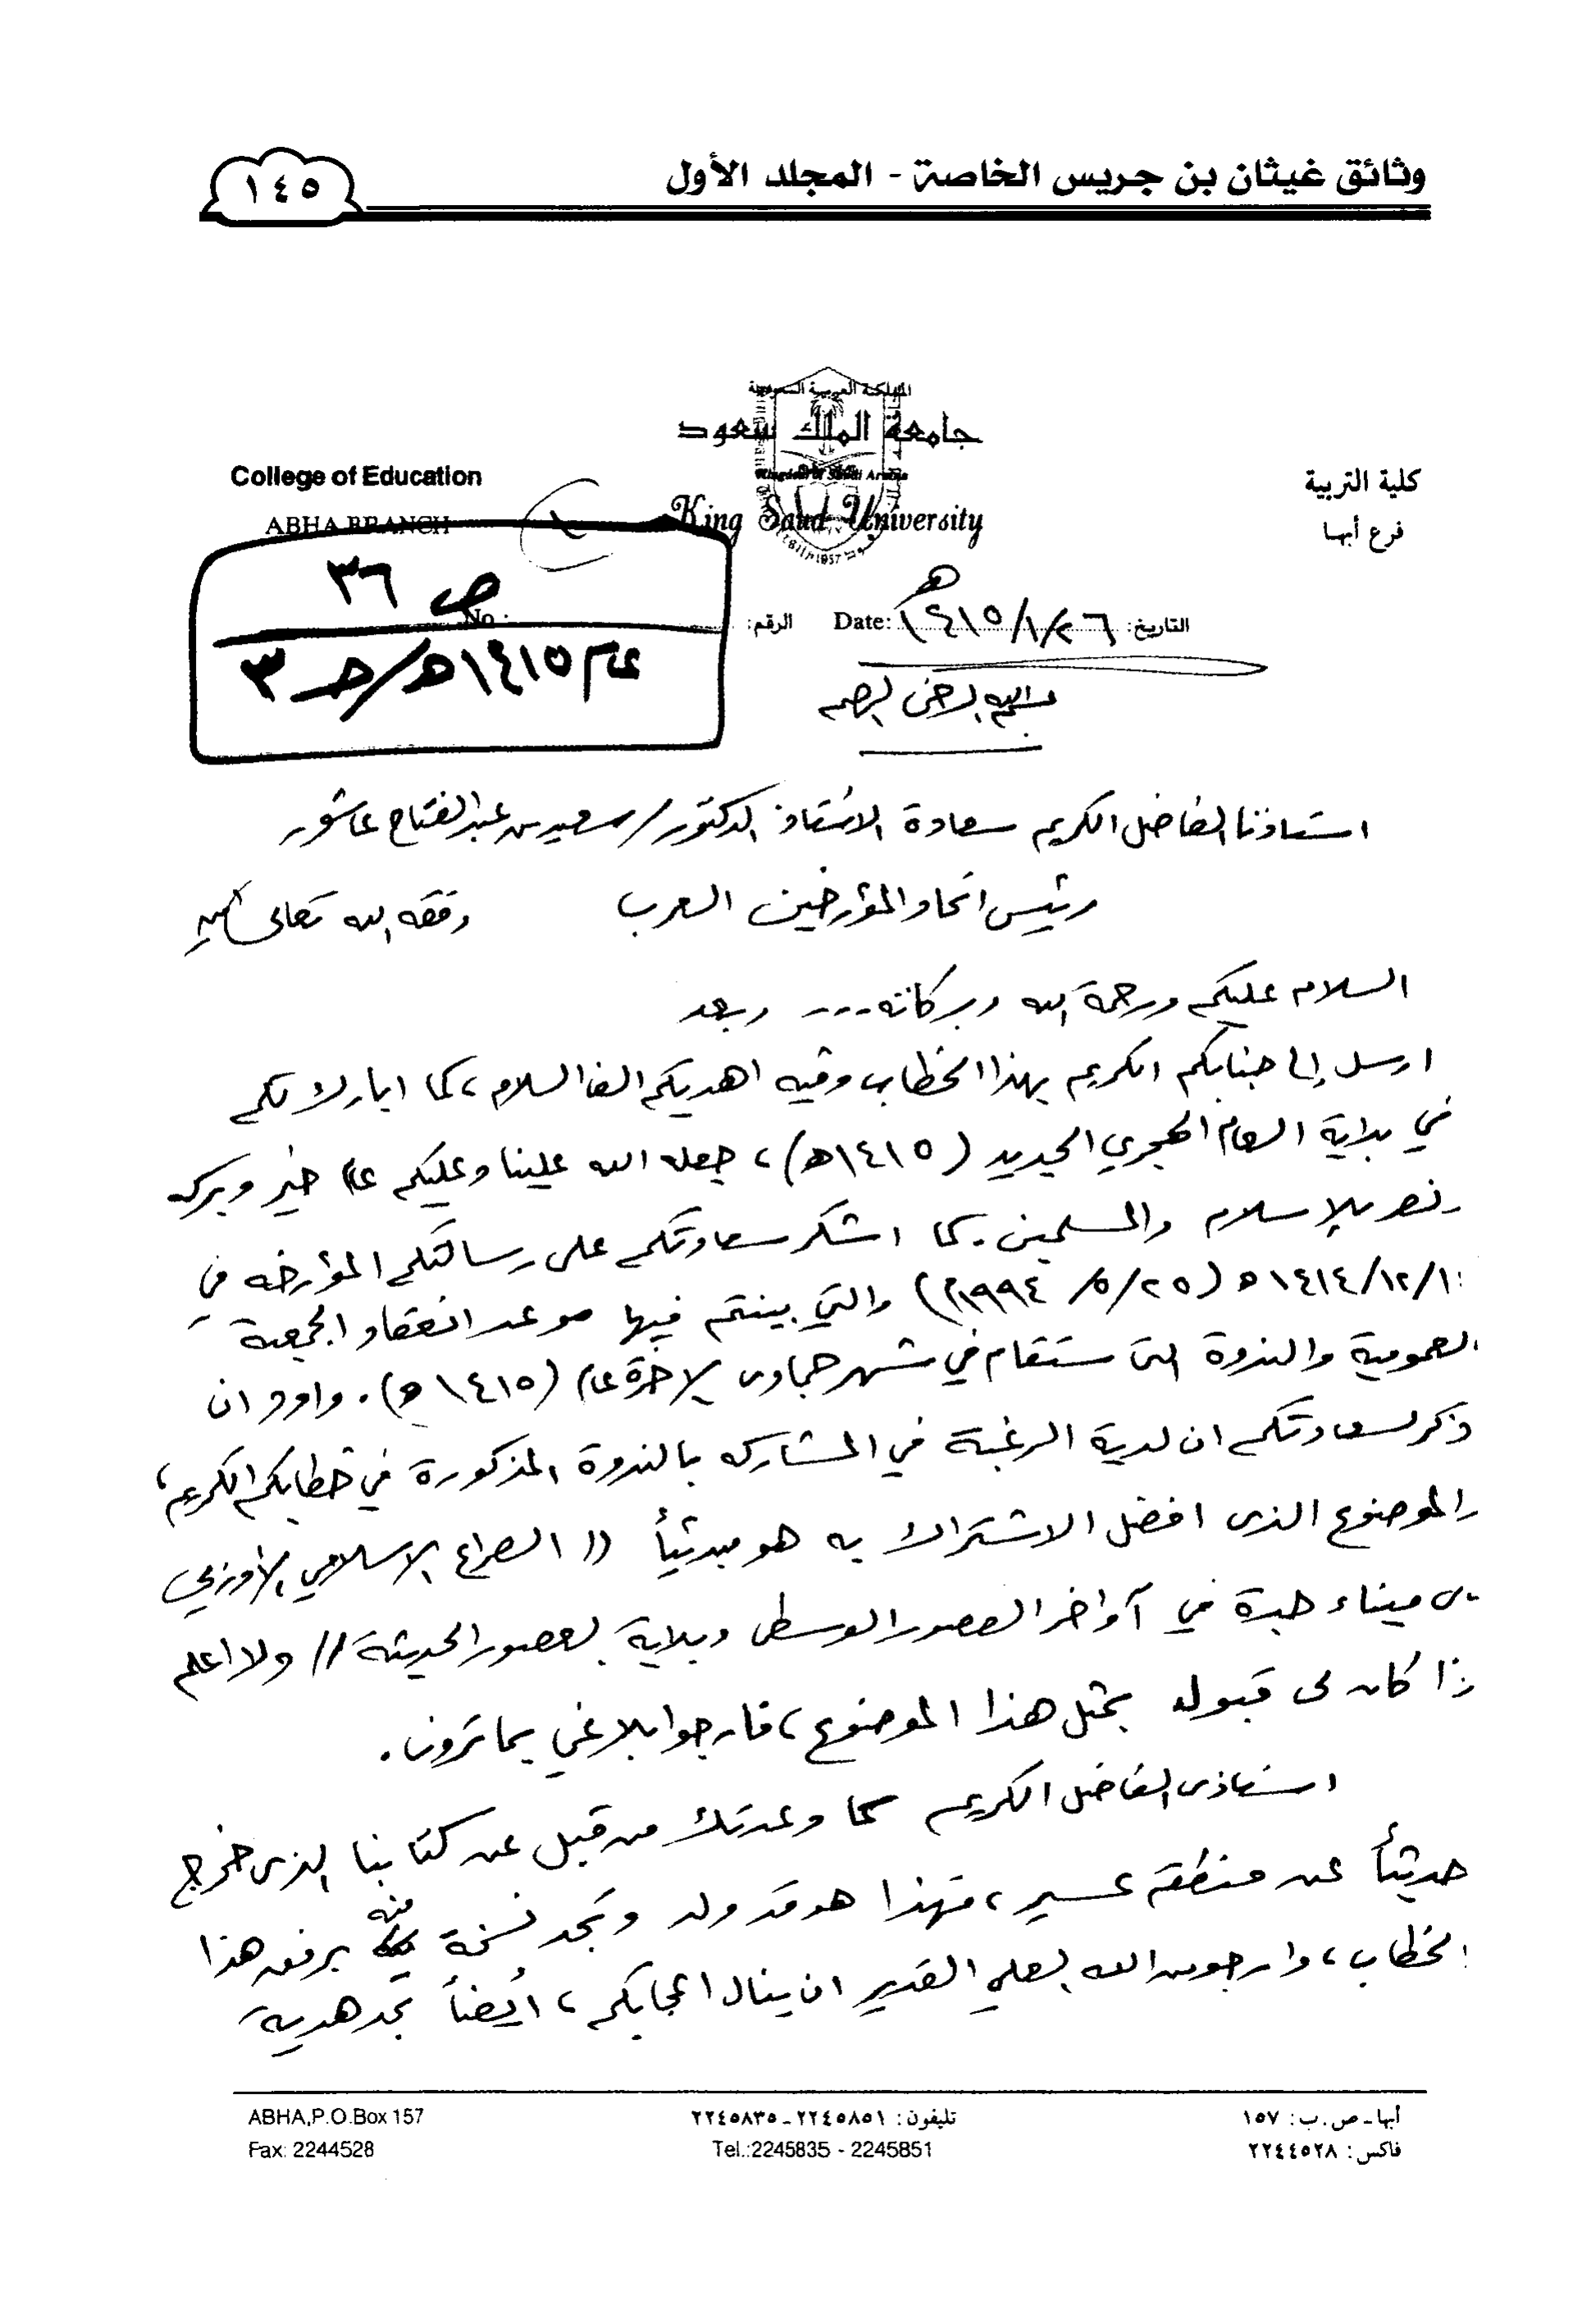 وثائق غيثان بن جريس الخاصة - المجلد الأول
١٤٥
المملكة العربية السعودية
جامعة الملك سعود
King Saud University
1957
College of Education
ABHA BRANCH
كلية التربية
فرع أبها
ص ٣٦
No :
عام ١٤١٥هـ/جـ ٣
الرقم:
التاريخ: ١٤١٥/١/٢٦هـ Date:
بسم الله الرحمن الرحيم
استاذنا الفاضل الكريم سعادة الاستاذ الدكتور/ سعيد بن عبدالفتاح عاشور
رئيس اتحاد المؤرخين العرب وفقه الله تعالى آمين
السلام عليكم ورحمة الله وبركاته --- وبعد
ارسل إلى جنابكم الكريم بهذا الخطاب وفيه اهديكم الف السلام، كما ابارك لكم
في بداية العام الهجري الجديد (١٤١٥هـ)، جعله الله علينا وعليكم عام خير وبركه
ونصر للإسلام والمسلمين. كما اشكر سعادتكم على رسالتكم المؤرخه في
١٤١٤/١٢/١ هـ (٢٥/٥/١٩٩٤م) والتي بينتم فيها موعد انعقاد الجمعية
العمومية والندوة التى ستقام في شهر جمادى الاخرة عام (١٤١٥هـ). واود ان
اذكر لسعادتكم ان لدية الرغبة في المشاركه بالندوة المذكورة في خطابكم الكريم،
والموضوع الذى افضل الاشتراك به هو مبدئياً ((الصراع الاسلامي الأوربي
على ميناء جدة في آواخر العصور الوسطى وبداية العصور الحديثة)) ولا اعلم
إذا كان لى قبول بمثل هذا الموضوع، فارجوا بلاغي بما ترون.
استاذى الفاضل الكريم كما وعدتك من قبل عن كتابنا الذى خرج
حديثاً عن منطقة عسير، فهذا هو قد ولد وتجد نسخة منه برفق هذا
الخطاب، وارجو من الله العلي القدير ان ينال اعجابكم، أيضاً تجد هدية
أبها - ص. ب: ١٥٧
فاكس: ٢٢٤٤٥٢٨
تليفون: ٢٢٤٥٨٥١ - ٢٢٤٥٨٣٥
Tel.:2245835 - 2245851
ABHA,P.O.Box 157
Fax: 2244528